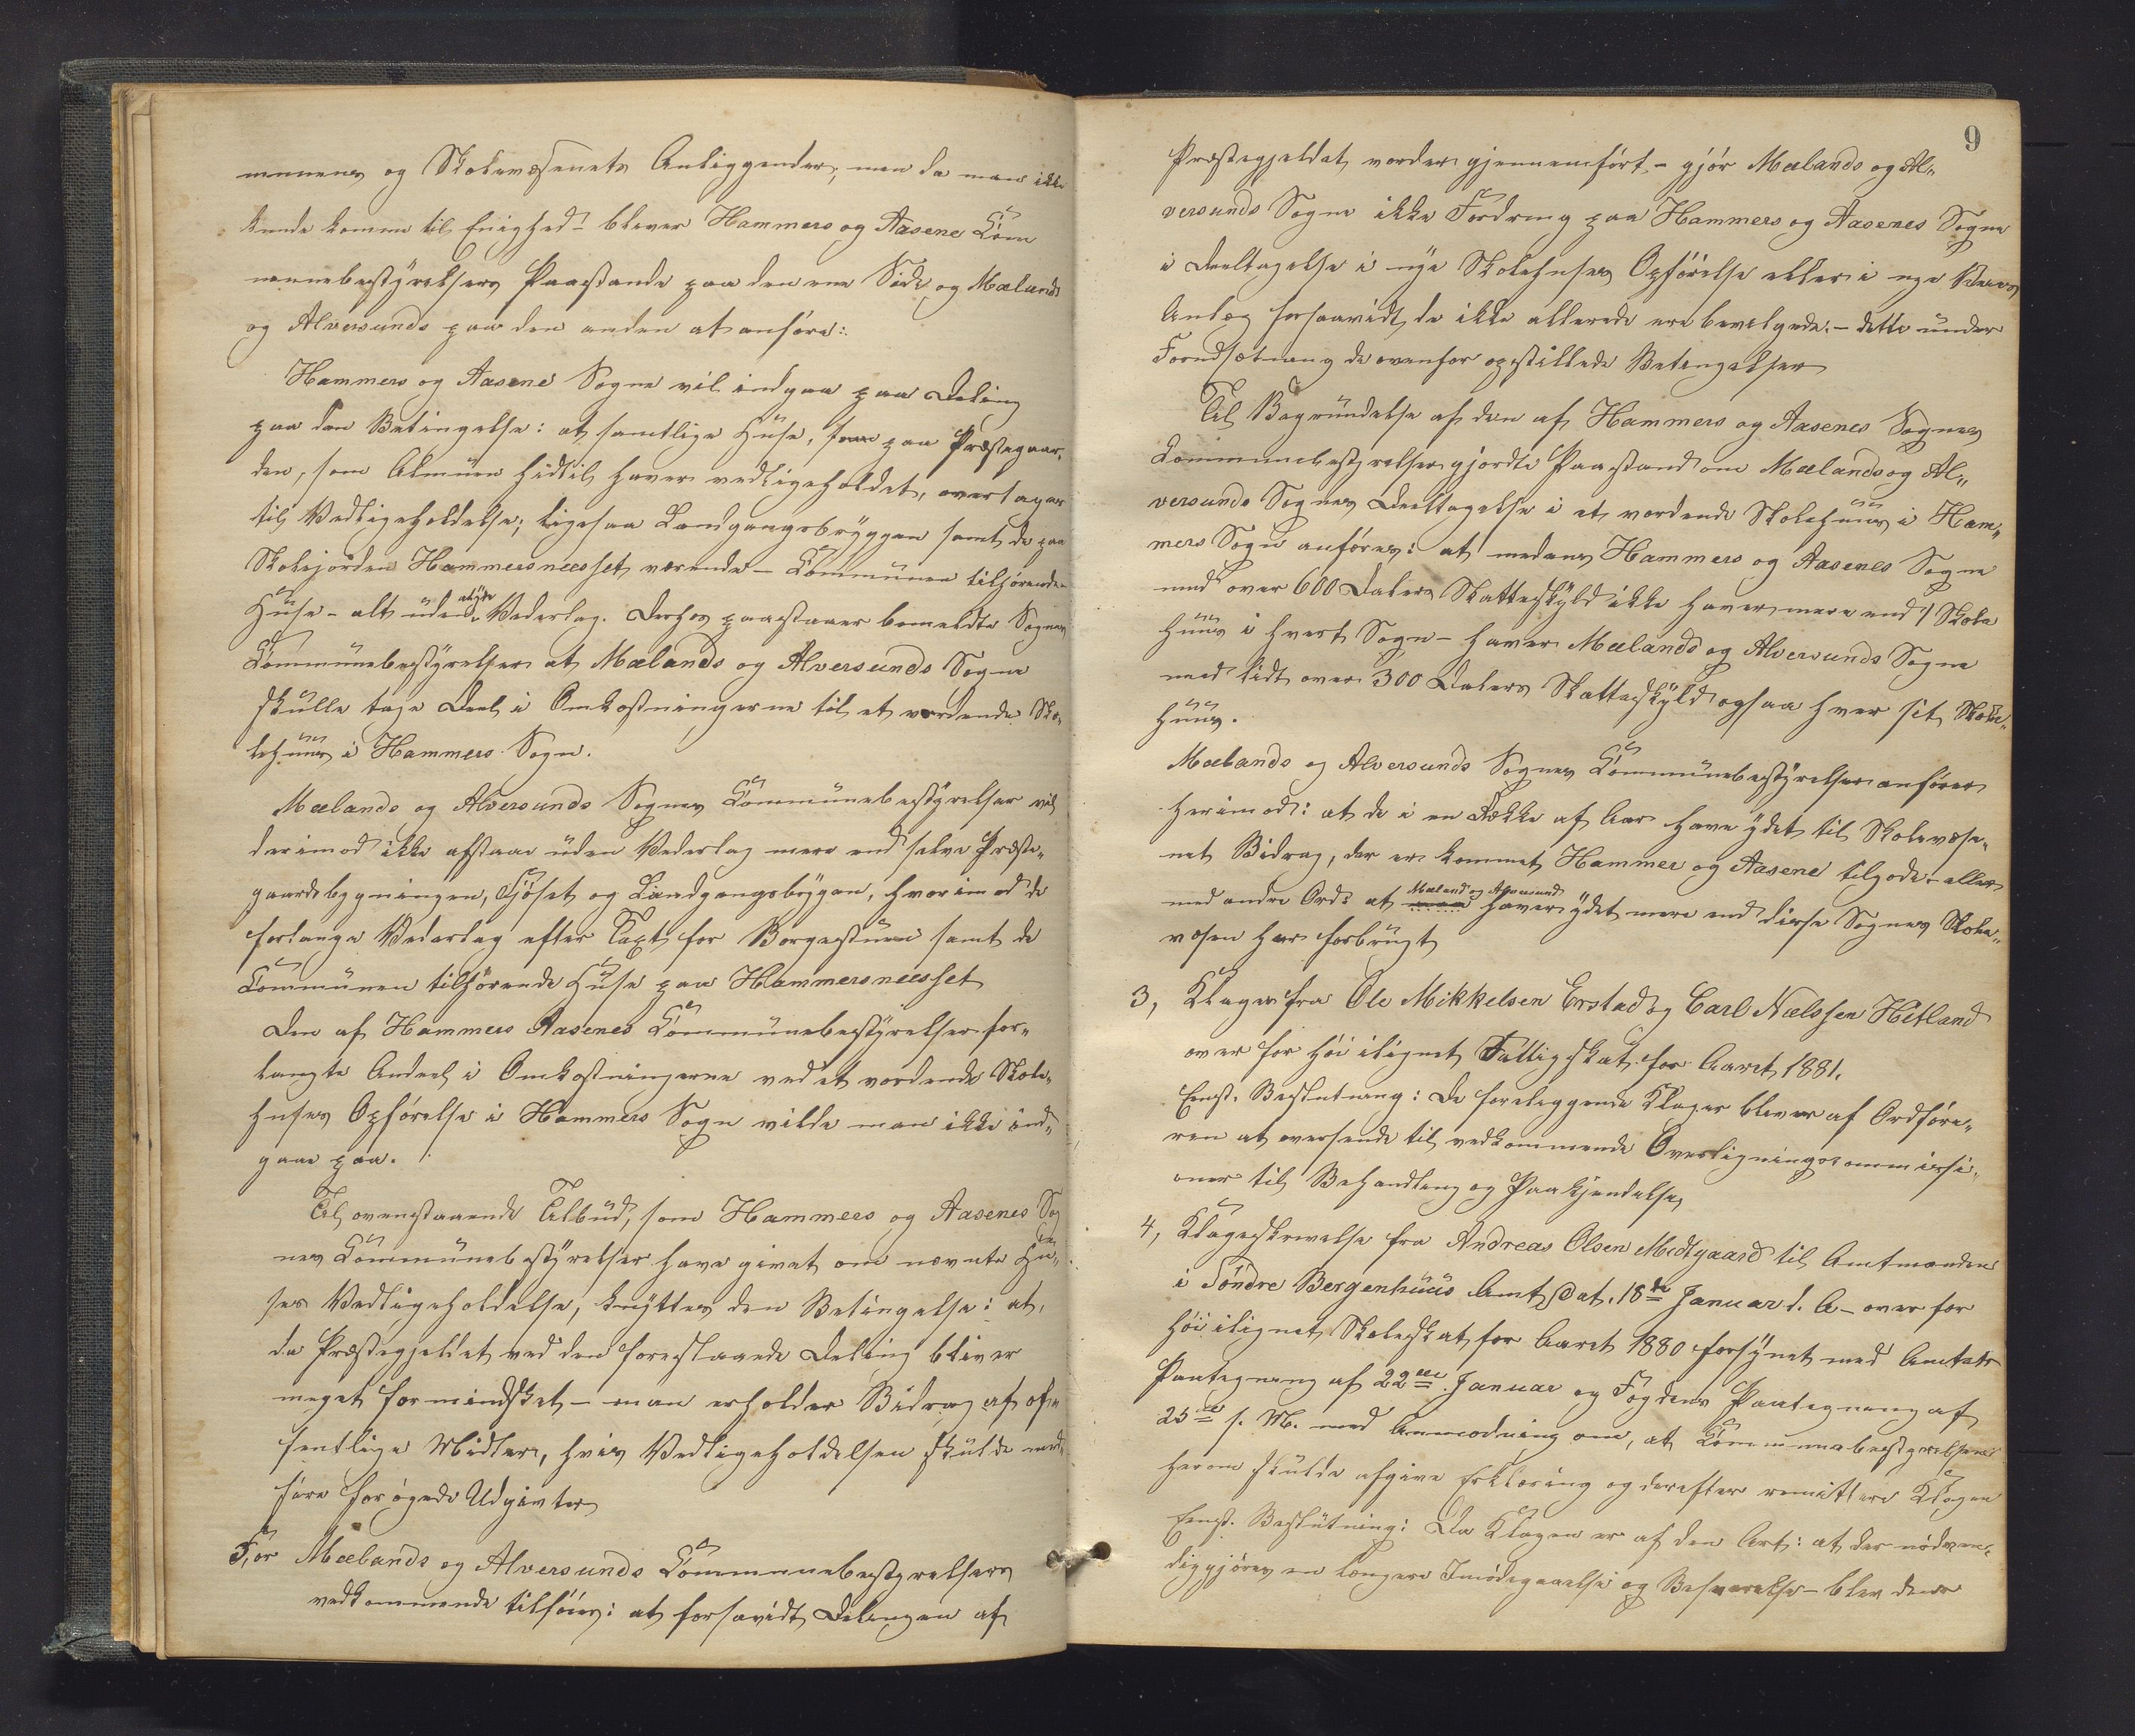 munens og Skolevæsenets Anliggender; men da man ikke
kunde komme til Enighed - bliver Hammers og Aasene Com
munebestyrelsers Paastande paa den ene Side og Mælands
og Alversunds paa den anden at anføre:
Hammers og Aasene Sogne vil indgaa paa Deling
paa den Betingelse: at samtlige Huse, som paa Præstegaar-
den, som Almuen hidtil haver vedligeholdet, overtages
til Vedligeholdelse; ligesaa Landgangsbryggen samt de paa
Skolejorden Hammersneesset værende - Communen tilhørende
Huse - alt uden at yde Vederlag. Derhos paastaaer bemeldte Sognes
Communebestyrelser at Mælands og Alversunds Sogne
skulle tage Deel i Omkostningerne til et vordende Sko-
lehuus i Hammers Sogn.
Mælands og Alversunds Sognes Communebestyrelser vil
derimod ikke afstaae uden Vederlag mere end selve Præste-
gaardsbygningen, Fjøset og Landgangsbrygen, hvorimod de
forlange Vederlag efter Taxt for Borgestuen samt de
Communen tilhørende Huse paa Hammersneesset
Den af Hammers Aasenes Communebestyrelser for-
langte Andeel i Omkostningerne ved et vordende Skole-
huses Opførelse i Hammers Sogn vilde man ikke ind-
gaae paa.
Til ovenstaaende Tilbud, som Hammers og Aasenes Sog
nes Communebestyrelser have givet om nævnte Hu-
ses Vedligeholdelse, knyttes den Betingelse: at,
da Præstegjeldet ved den foreslaaede Deling bliver
meget formindsket - man erholder Bidrag af of-
fentlige Midler, hvis Vedligeholdelsen skulde med-
føre forøgede Udgivter
For Mælands og Alversunds Communebestyrelsers
vedkommende tilføies: at forsavidt Delingen af
9
Præstegjeldet vorder gjennemført - gjør Mælands og Al-
versunds Sogne ikke Fordring paa Hammers og Aasenes Sogne
i Deeltagelse i nye Skolehuses Opførelse eller i nye Veies
Anlæg forsaavidt de ikke allerede ere bevilgede. - dette under
Forudsætning de ovenfor opstillede Betingelser
Til Begrundelse af den af Hammers og Aasenes Sognes
Communebestyrelser gjordte Paastand om Mælands og Al-
versunds Sognes Deeltagelse i et vordende Skolehuus i Ham-
mers Sogn anføres: at medens Hammers og Aasenes Sogne
med over 600 Dalers Skatteskyld ikke haver mere end 1 Skole
huus i hvert Sogn - haver Mælands og Alversunds Sogne
med lidt over 300 Dalers Skatteskyld ogsaa hver sit Skole-
huus.
Mælands og Alversunds Sognes Communebestyrelser anfører
herimod: at de i en Række af Aar have ydet til Skolevæse-
net Bidrag, der er kommet Hammer og Aasene tilgode - eller
med andre Ord: at Mæland og Alversund haver ydet mere end disse Sognes Skole-
væsen har forbrugt
3, Klager fra Ole Mikkelsen Erstad og Carl Nielssen Hitland
over for høi ilignet Fattigskat for Aaret 1881.
Eenst. Beslutning: De foreliggende Klager bliver af Ordføre-
ren at oversende til vedkommende Overligningscommissi-
oner til Behandling og Paakjendelse
4, Klageskrivelse fra Andreas Olsen Midtgaard til Amtmanden
i Søndre Bergenhuus Amt Dat. 18de Januar d. A - over for
høi ilignet Skoleskat for Aaret 1880 forsynet med Amtets
Paategning af 22de Januar og Fogdens Paategning af
25de s. M. med Anmodning om, at Communebestyrelsen
herom skulde afgive Erklæring og derefter remittere Klagen
Eenst. Beslutning: Da Klagen er af den Art: at der nødven-
diggjøres en længere Imødegaaelse og Besvarelse - blev den